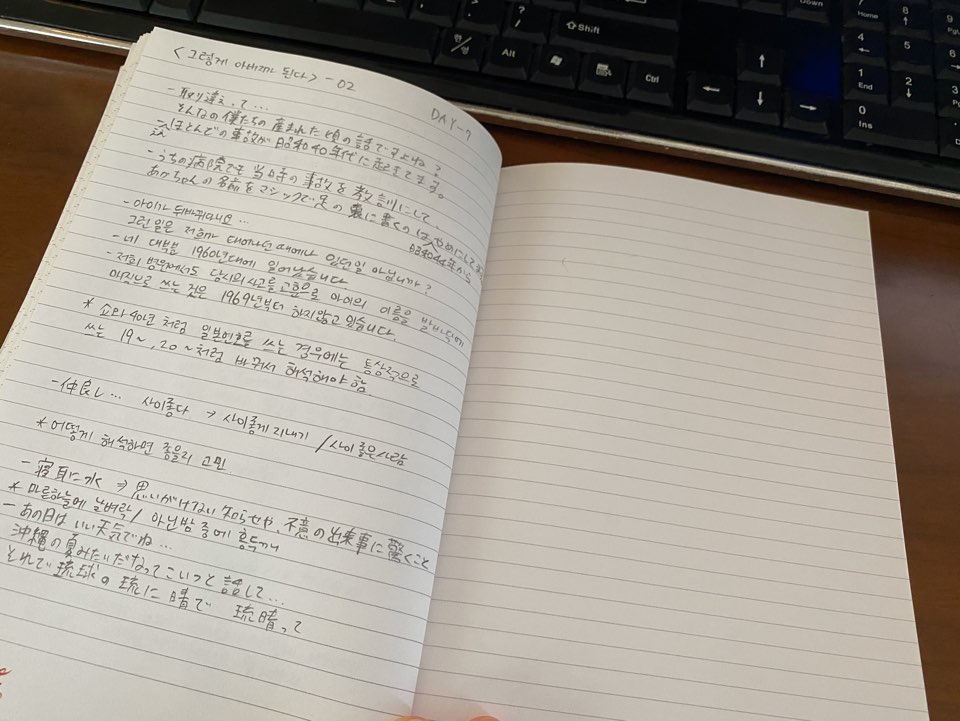 <그렇게 아버지가 된다> - 02
DAY-7
- 取り違えって…
そんなの僕たちの産まれた頃の話ですよね?
ほとんどの事故が昭和40年代に起きてます。
- うちの病院でも当時の事故を教訓にして
あかちゃんの名前をマジックで足の裏に書くのはやめにして
昭和44年から
- 아이가 뒤바뀌다니요…
그런 일은 저희가 태어나던 때에나 있던일 아닙니까?
- 네 대부분 1960년대에 일어났습니다.
- 저희 병원에서도 당시의 사고를 교훈으로 아이의 이름을 발바닥에
매직으로 쓰는 것은 1969년부터 하지않고 있습니다.
* 쇼와 40년 처럼 일본연호를 쓰는 경우에는 통상적으로
쓰는 19~, 20~처럼 바꿔서 해석해야 함.
- 仲良し… 사이좋다 → 사이좋게 지내기 / 사이 좋은 사람
* 어떻게 해석하면 좋을지 고민
- 寝耳に水 ⇒ 思いがけない知らせや、不意の出来事に驚くこと
* 마른하늘에 날벼락 / 아닌밤 중에 홍두깨
- あの日はいい天気でね…
沖縄の夏みたいだなってこいつと話して…
それで琉球の琉に晴で 琉晴って
한/영
Alt
Ctrl
Shift
?
/
4
5
6
1
End
2
3
0
Ins
7
Home
8
9